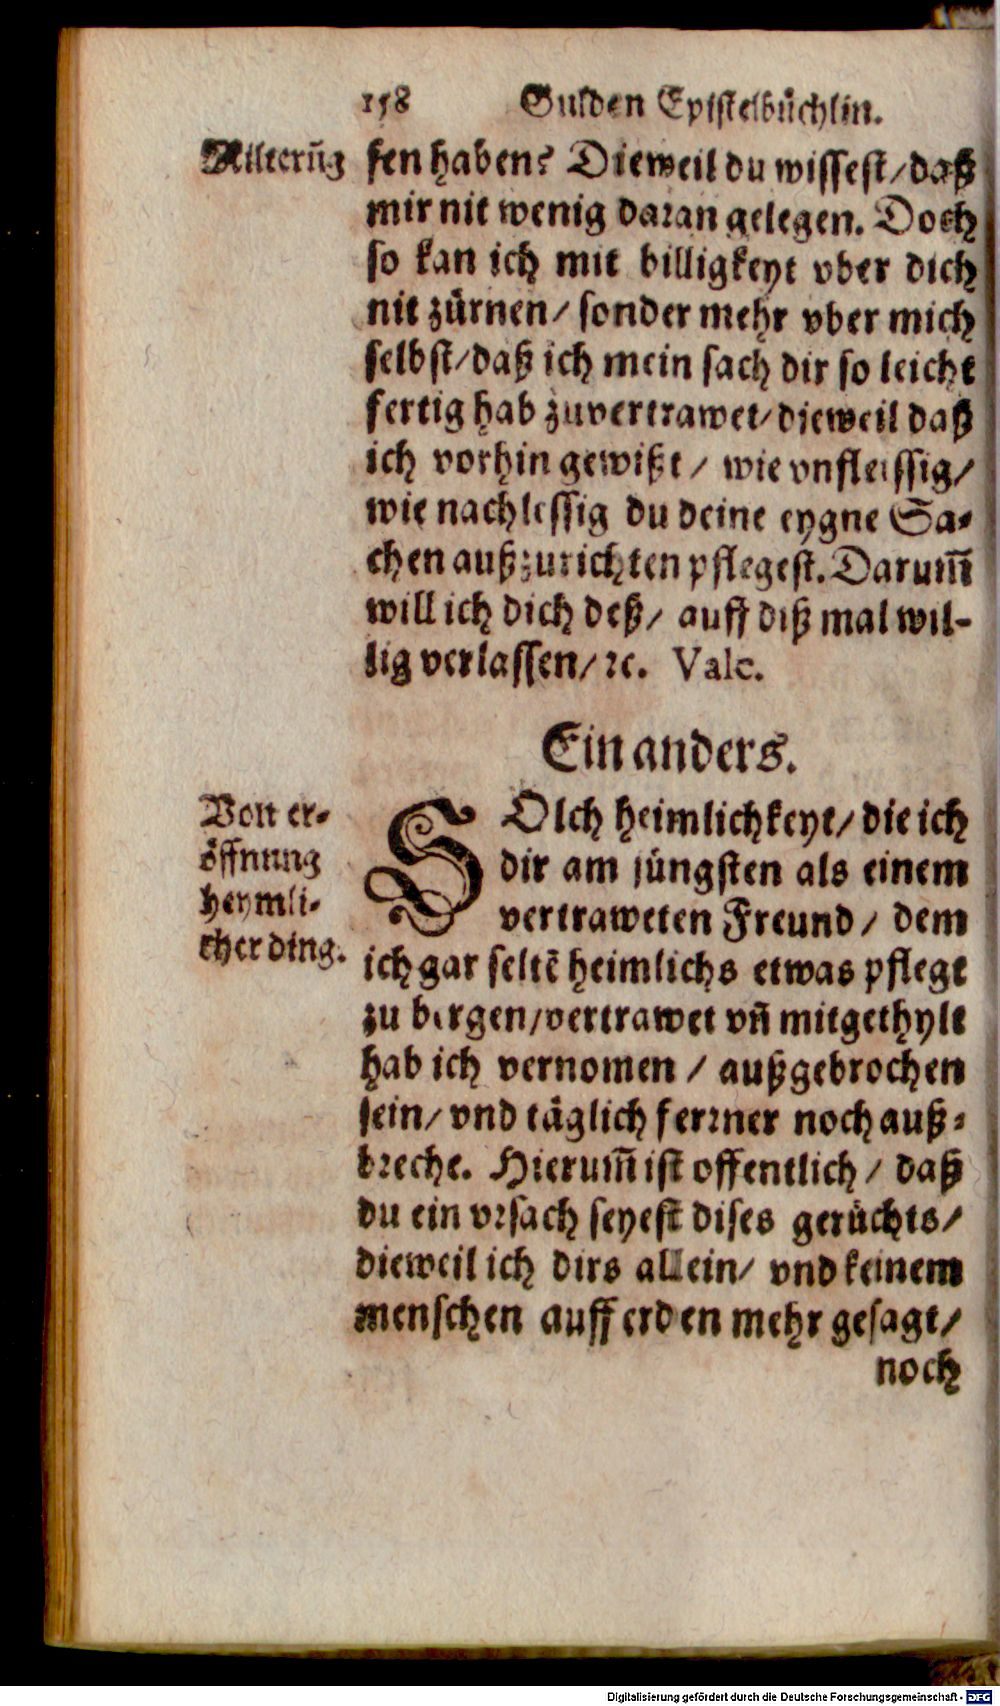 158 Gulden Epistelbüchlin.
Milterũg
sen haben? Dieweil du wissest/ daß
mir nit wenig daran gelegen. Doch
so kan ich mit billigkeyt vber dich
nit zürnen/ sonder mehr vber mich
selbst/ daß ich mein sach dir so leicht
fertig hab zuvertrawet/ dieweil daß
ich vorhin gewißt/ wie vnfleissig/
wie nachlessig du deine eygne Sa-
chen außzurichten pflegest. Darum̃
will ich dich deß/ auff diß mal wil-
lig verlassen/ ꝛc. Vale.
Ein anders.
Von er-
öffnung
heymli-
cher ding.
SOlch heimlichkeyt/ die ich
dir am jüngsten als einem
vertraweten Freund/ dem
ich gar seltẽ heimlichs etwas pflegt
zu bergen/ vertrawet vñ mitgethylt
hab ich vernomen/ außgebrochen
sein/ vnd täglich ferrner noch auß-
breche. Hierum̃ ist offentlich/ daß
du ein vrsach seyest dises gerüchts/
dieweil ich dirs allein/ vnd keinem
menschen auff erden mehr gesagt/
noch
Digitalisierung gefördert durch die Deutsche Forschungsgemeinschaft - DFG